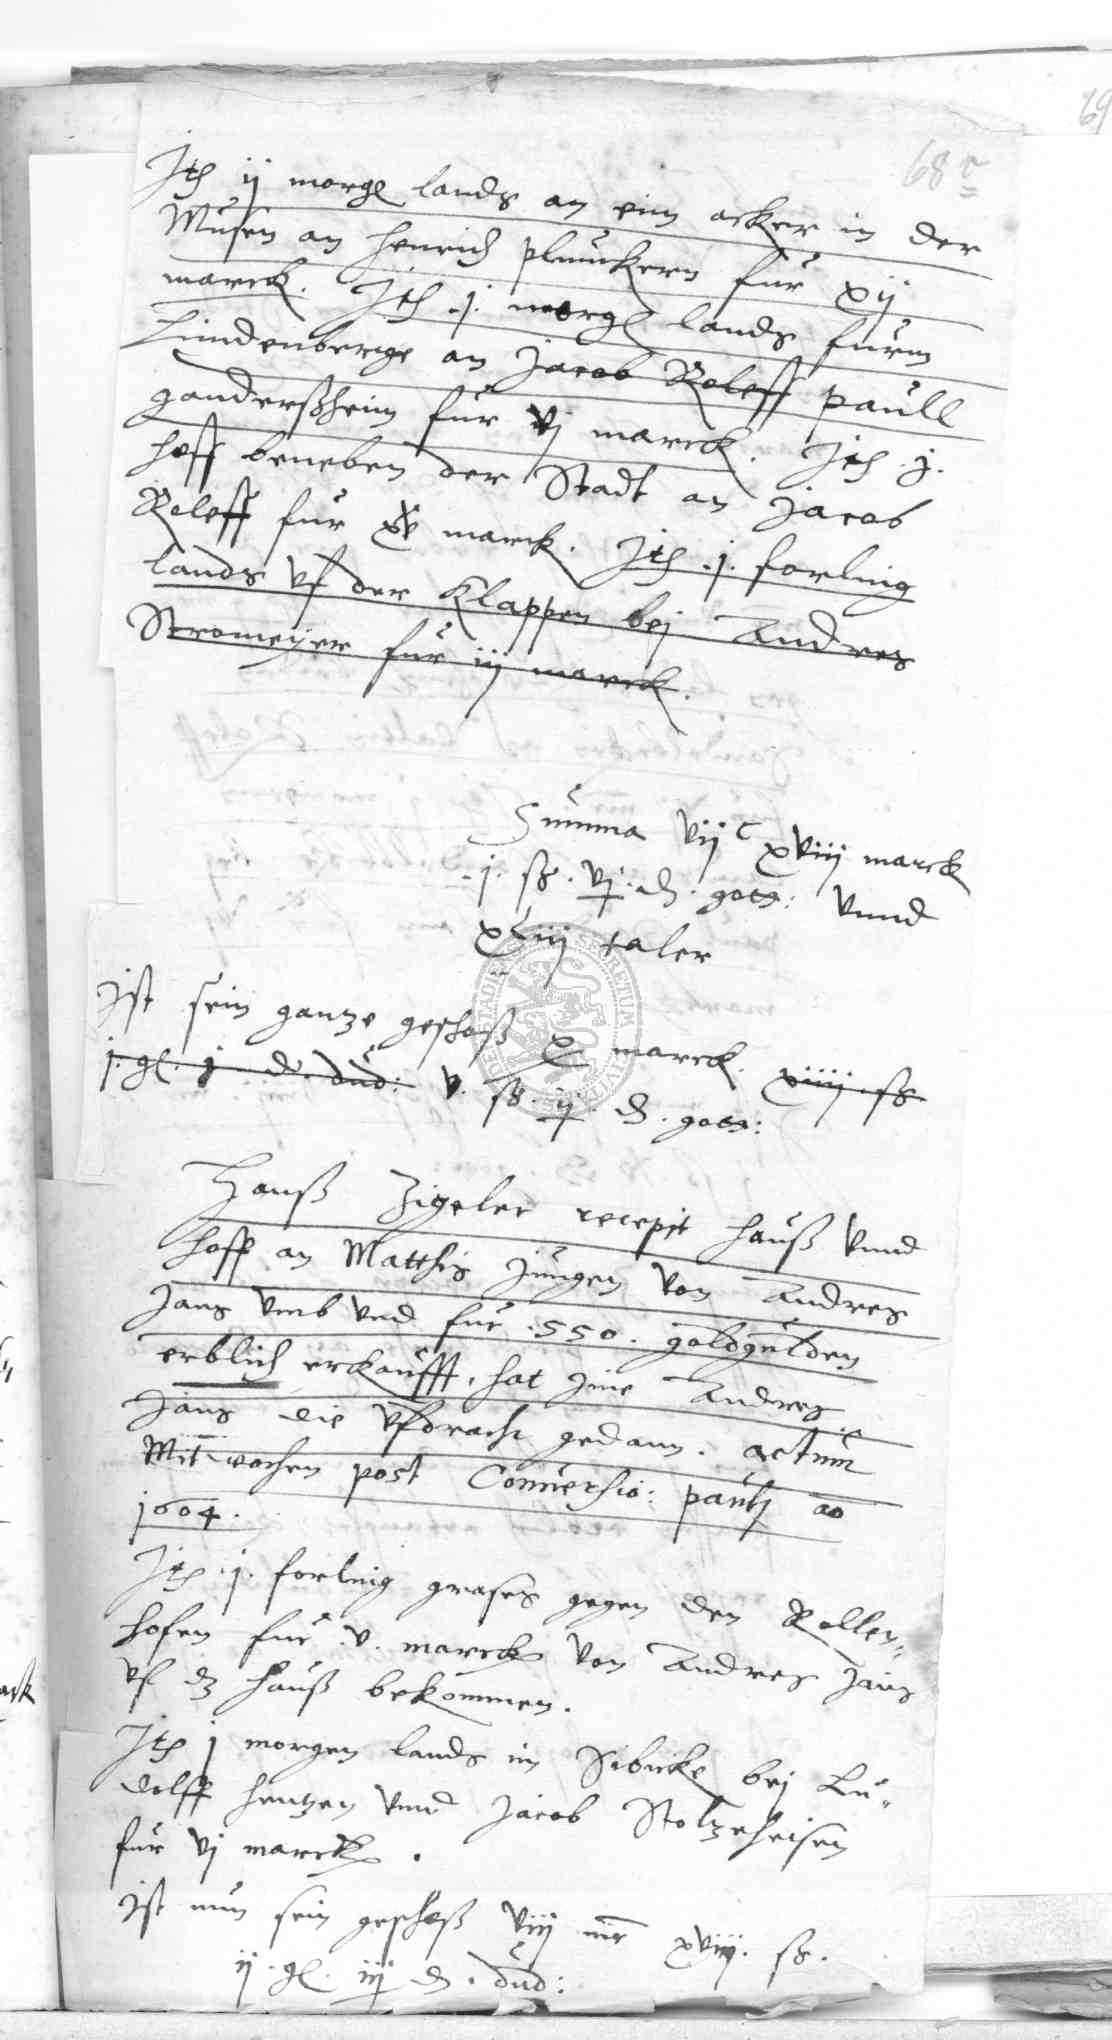 69
68 v
Jtē ij morgē lands an eim acker in der
Musen an Henrich Pluickern für xij
marck. Jtē .j. morgē lands fürm
Lindenberge an Jacob Roleff Paull
ganderßheim für vj marck. Jtē .j.
hoff beneben der Stadt an Jacob
Roleff für marck. Jtē .j. forling
lands vf der Klappen bej Andres
Stromeyer für iij marck.
Summa vij c xviij marck
.j. ß. vj. d. gott: vnnd
taler
Jst sein gantze geschoß x marck. xiiij ß
j. gl. j d. dud: v. ß. ij. d. gott:
Hanß Zigeler recepit Hauß vnnd
hoff an Matthis Jungen von Andres
Jans vmb vnd für .550. goldgulden
erblich erkaufft, hat jme Andres
Jans die vfdracht gedann. actum
Mitwochen post Conuersio: pauli ao
1604.
Jtē .j. forling grases gegen den Rollen-
hofen für .v. marck von Andres Jans
vf dz Hauß bekommen.
Jtē j morgen lands im Sibicke bej Lu-
dolff Hentzen vnnd Jacob Stoltzeheisen
für vj marck.
Jst nun sein geschoß viij mr xviij. ß.
ij. gl. iij d. dud: